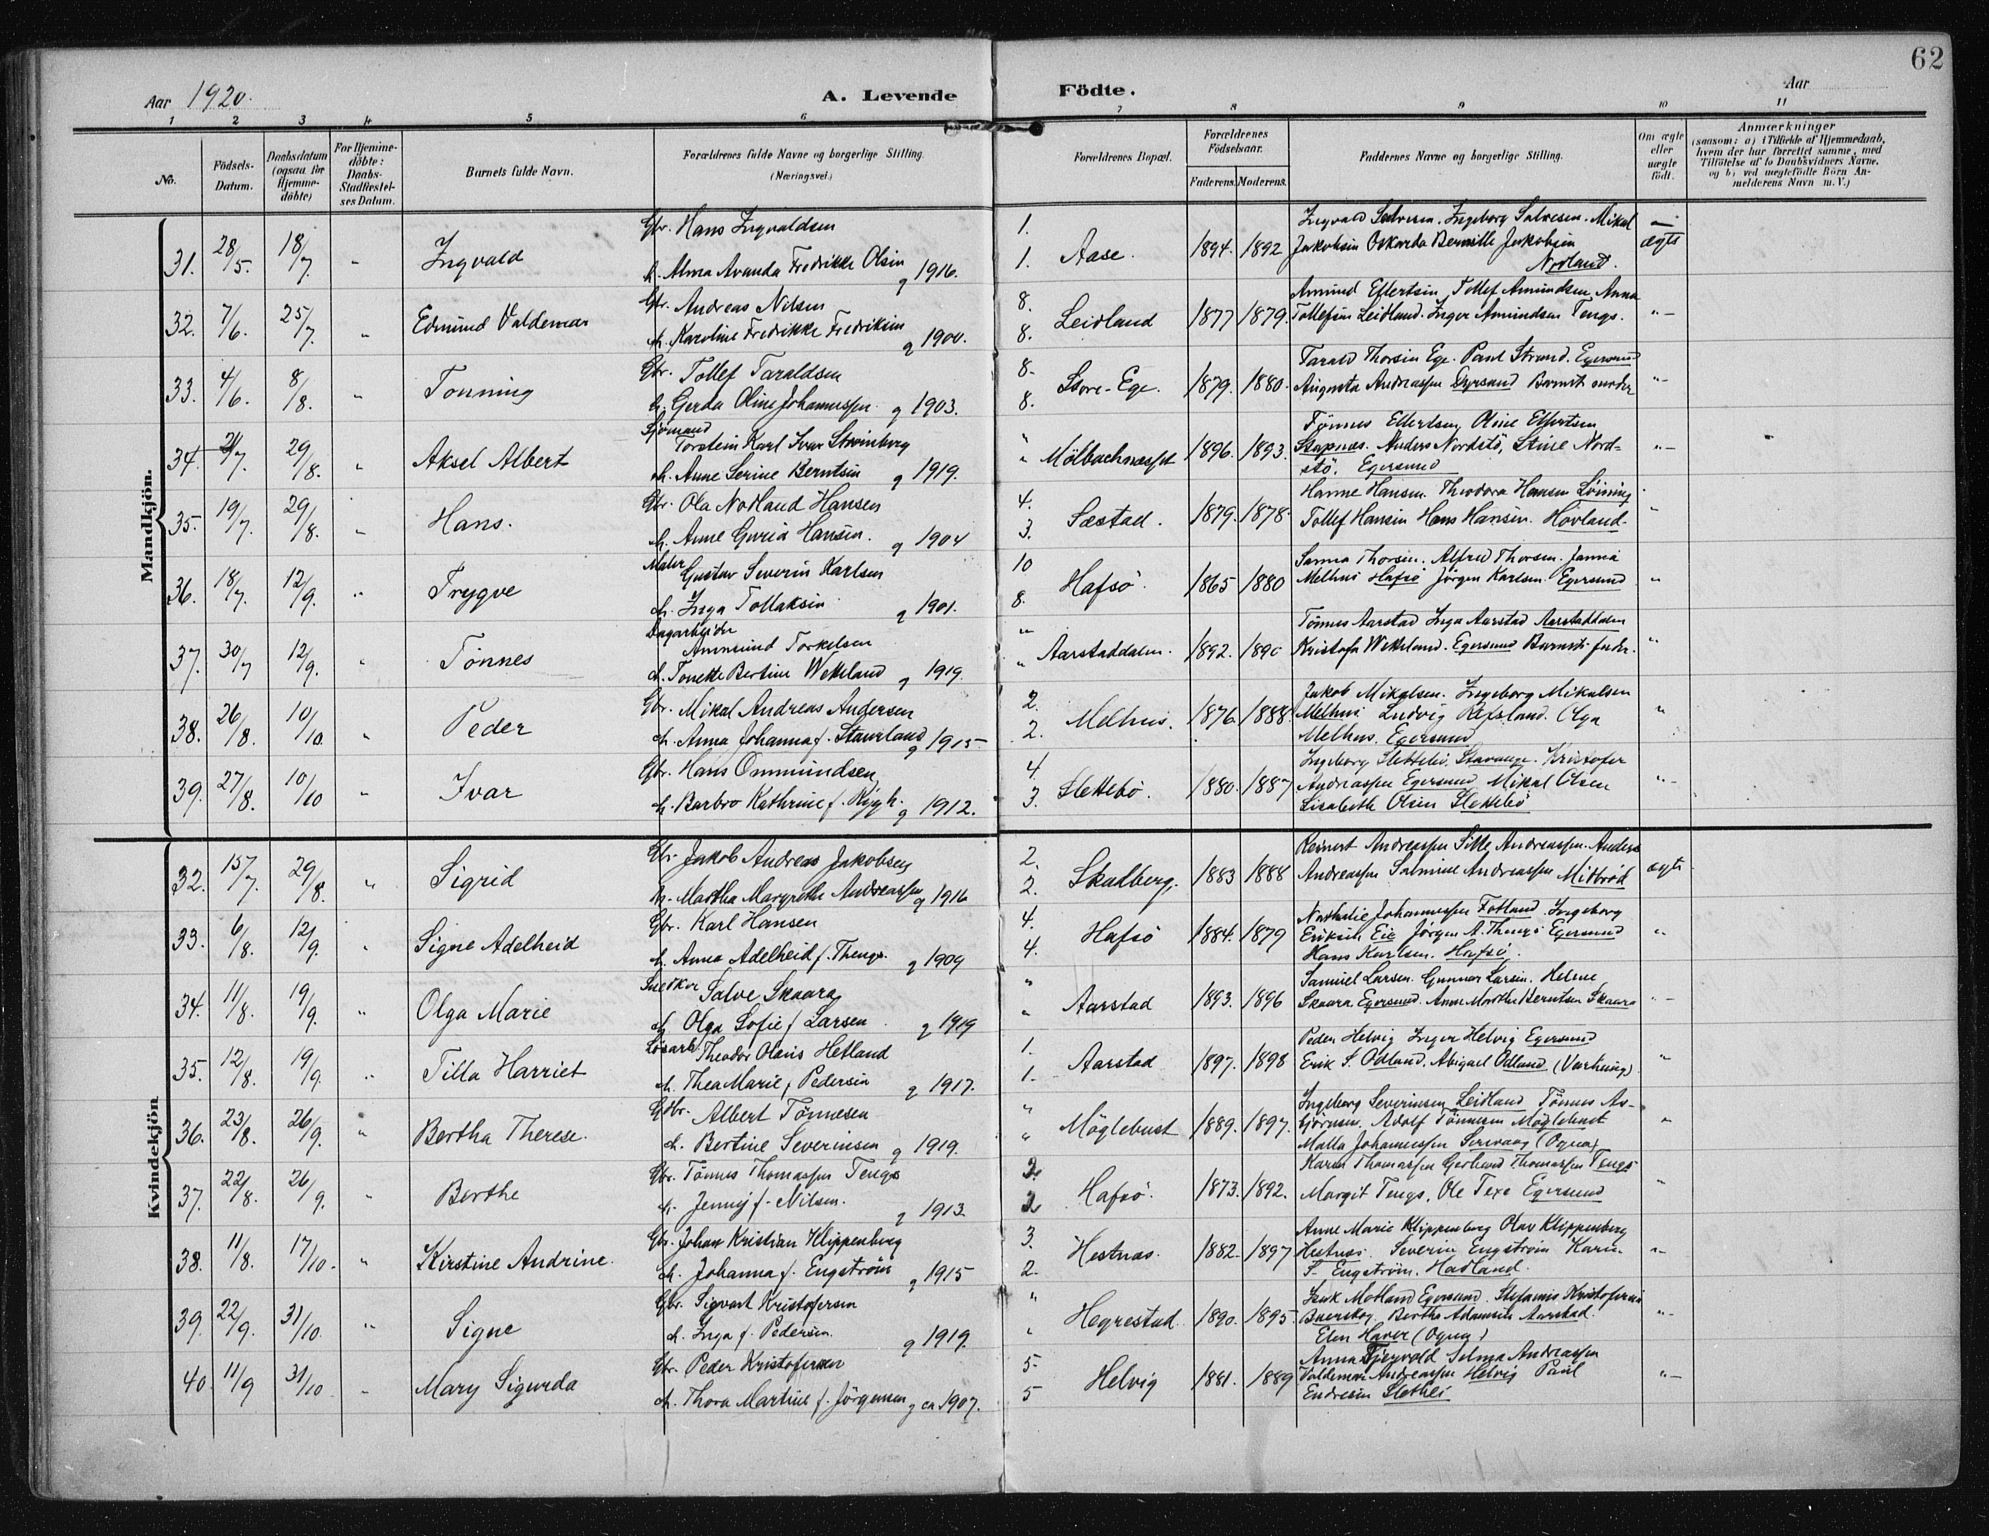 62
Aar 1920.
A. Levende Födte.
Aar
1 2 3 4 5 6 7 8 9 10 11
No.
Födsels-Datum.
Daabsdatum (ogsaa for Hjemme-döbte)
For Hjemme-döbte: Daabs-Stadfæstel-ses Datum.
Barnets fulde Navn.
Forældrenes fulde Navne og borgerlige Stilling. (Næringsvei.)
Forældrenes Bopæl.
Forældrenes Födselsaar.
Faderens. Moderens.
Faddernes Navne og borgerlige Stilling.
Om ægte eller uægte födt.
Anmærkninger
(saasom: a) i Tilfælde af Hjemmedaab, hvem der har forrettet samme, med Tilföielse af to Daabsvidners Navne, og b) ved uægtefödte Börn An-melderens Navn m. V.)
Mandkjön.
Gbr. Hans Ingvaldsen 1. Ingvald Salvesen. Ingeborg Salvesen. Mikal
31. 28/5. 18/7 " Ingvald h. Alma Amanda Fredrikke Olsen g 1916. 1. Aase. 1894. 1892 Jakobsen Oskarda Bernille Jakobsen ægte
Nodland.
Gbr. Andreas Nilsen 8. Amund Eftertsen, Tollef Amundsen, Anna
32. 7/6. 25/7. " Edmund Valdemar h. Karoline Fredrikke Fredriksen g 1900. 8. Leidland 1877 1879. Tollefsen Leidland. Inger Amundsen Tengs. "
Gbr. Tollef Taraldsen 8. Tarald Thorsen Ege. Paul Strand. Egersund
33. 4/6. 8/8. " Tonning h. Gerda Oline Johannessen. g 1903. 8. Store-Ege. 1879. 1880. Augusta Andreassen Egersund Barnets moder "
Sjömand Torstein Karl Ivar Steinberg " Tønnes Eftertsen, Oline Eftertsen
34. 21/7. 29/8. " Aksel Albert h. Anne Serine Berntsen g 1919. " Mölbachnæsset 1896. 1893. Stapnæs. Anders Nordstö, Stine Nord- "
stö. Egersund
Gbr. Ola Nodland Hansen 4. Hanne Hansen. Theodora Hansen Löining
35. 19/7. 29/8. " Hans. h. Anne Guria Hansen. g 1904 3. Sæstad. 1879. 1878. Tollef Hansen Hans Hansen. Hovland. "
Maler Gustav Severin Karlsen 10 Sanna Thorsen. Alfred Thorsen. Janna
36. 18/7. 12/9. " Trygve h. Inga Tollaksen g 1901. 8. Hafsö. 1865 1880 Melhus Hafsö Jörgen Karlsen. Egersund "
Dagarbeider Ammund Torkelsen " Tönnes Aarstad Inga Aarstad Aarstaddalen
37. 30/7 12/9. " Tönnes h. Tonette Bertine Wetteland g 1919 " Aarstaddalen. 1892. 1890 Kristofa Wetteland. Egersund Barnets fader. "
Gbr. Mikal Andreas Andersen 2. Jakob Mikalsen. Ingeborg Mikalsen
38. 26/8. 10/10. " Peder h. Anna Johanna f. Staurland g 1915 2. Melhus. 1876. 1888. Melhus Ludvig Refsland. Olga "
Melhus. Egersund
Gbr. Hans Ommundsen 4. Ingeborg Slettebö, Stavanger. Kristofer
39. 27/8. 10/10 " Ivar h. Barbro Kathrine f. Rygh. g 1912. 3. Slettebö. 1880. 1887 Andreassen Egersund Mikal Olsen "
Lisabeth Olsen Slettebö
Kvindekjön
Gbr. Jakob Andreas Jakobsen 2. Reinert Andreassen Sille Andreassen. Anders
32. 15/7. 29/8. " Sigrid h. Martha Margrethe Andreassen g 1916 2. Skadberg. 1883 1888 Andreassen Salmine Andreassen Midbröd ægte
Gbr. Karl Hansen 4. Nathalie Johannessen Fotland. Ingeborg
33. 6/8. 12/9. " Signe Adelheid h. Anna Adelheid f. Thengs. g 1909 4. Hafsö 1884. 1879 Eriksen Eie Jörgen A. Thengs Egersund "
Hans Karlsen. Hafsö.
Snedker Salve Skaara " Samuel Larsen. Gunnar Larsen. Helene
34. 11/8. 19/9. " Olga Marie h. Olga Sofie f Larsen g 1919 " Aarstad 1893. 1896 Skaara Egersund. Anne Marthe Berntsen Skaara "
Løsarb. Theodor Olaus Hetland 1. Peder Helvig Inger Helvig Egersund
35. 12/8. 19/9. " Tilla Harriet h. Thea Marie f Pedersen g 1917. 1. Aarstad 1897. 1898 Erik S. Odland. Abigael Odland (Varhaug). "
Gbr. Albert Tönnesen " Ingeborg Severinsen Leidland Tönnes As-
36. 23/8. 26/9. " Bertha Therese. h. Bertine Severinsen g 1919. " Möglebust 1889. 1897. björnsen. Adolf Tönnesen Möglebust "
Malla Johannessen Sirevaag (Ogna)
Gbr. Tönnes Thomassen Tengs 2. Karen Thomassen Gerhard Thomassen Tengs
37. 22/8. 26/9. " Berthe h. Jenny f. Nilsen. g 1913 2 Hafsö. 1873. 1892. Margit Tengs. Ole Texe Egersund "
Gbr. Johan Kristian Klippenberg 3. Anne Marie Klippenberg Olav Klippenberg
38. 11/8. 17/10. " Kirstine Andrine. h. Johanna f. Engström g 1915 2. Hestnæs. 1882. 1897 Hestnæs. Severin Engström Karen "
S. Engström. Hadland.
Gbr. Sigvart Kristofersen " Isak Motland Egersund. Stefanus Kristofersen
39. 22/9. 31/10. " Signe h. Inga f. Pedersen. g 1919. " Hegrestad. 1890. 1895. Buerskog. Bertha Adamsen Aarstad. "
Elen Haver (Ogna)
Gbr. Peder Kristofersen 5. Anna Tjersvold Selma Andreassen
40. 11/9 31/10. " Mary Sigurda h. Thora Martine f. Jörgensen g ca 1907. 5 Helvig 1881. 1889 Valdemar Andreassen Helvig Paul "
Endresen Slettebö